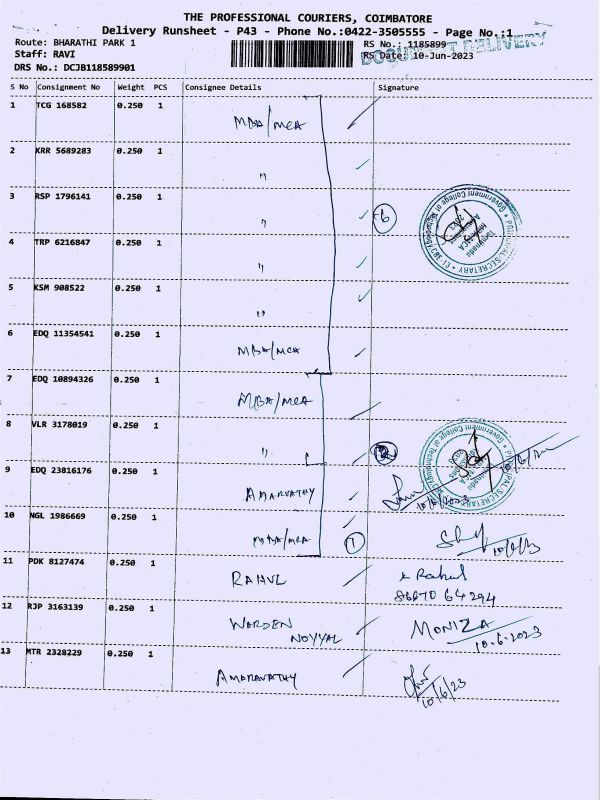 THE PROFESSIONAL COURIERS, COIMBATORE
Delivery Runsheet - P43 - Phone No.:0422-3505555 - Page No.:1
Route: BHARATHI PARK 1
RS No.: 1185899
Staff: RAVI
RS Date: 10-Jun-2023
DOCUMENT DELIVERY
DRS No.: DCJB118589901
S No Consignment No Weight PCS Consignee Details Signature
1 TCG 168582 0.250 1 MBA/MCA
2 KRR 5689283 0.250 1 "
3 RSP 1796141 0.250 1 " 6
4 TRP 6216847 0.250 1 "
5 KSM 908522 0.250 1 "
6 EDQ 11354541 0.250 1 MBA/MCA
7 EDQ 10894326 0.250 1 MBA/MCA
8 VLR 3178019 0.250 1 " 2
9 EDQ 23816176 0.250 1 AMARVATHY 10/6/2023
10 NGL 1986669 0.250 1 MBA/MCA 1
11 PDK 8127474 0.250 1 RAHUL Rahul
86670 64294
12 RJP 3163139 0.250 1 WARDEN MONIZA
NOYYAL 10-6-2023
13 MTR 2328229 0.250 1 AMARAVATHY
10/6/23